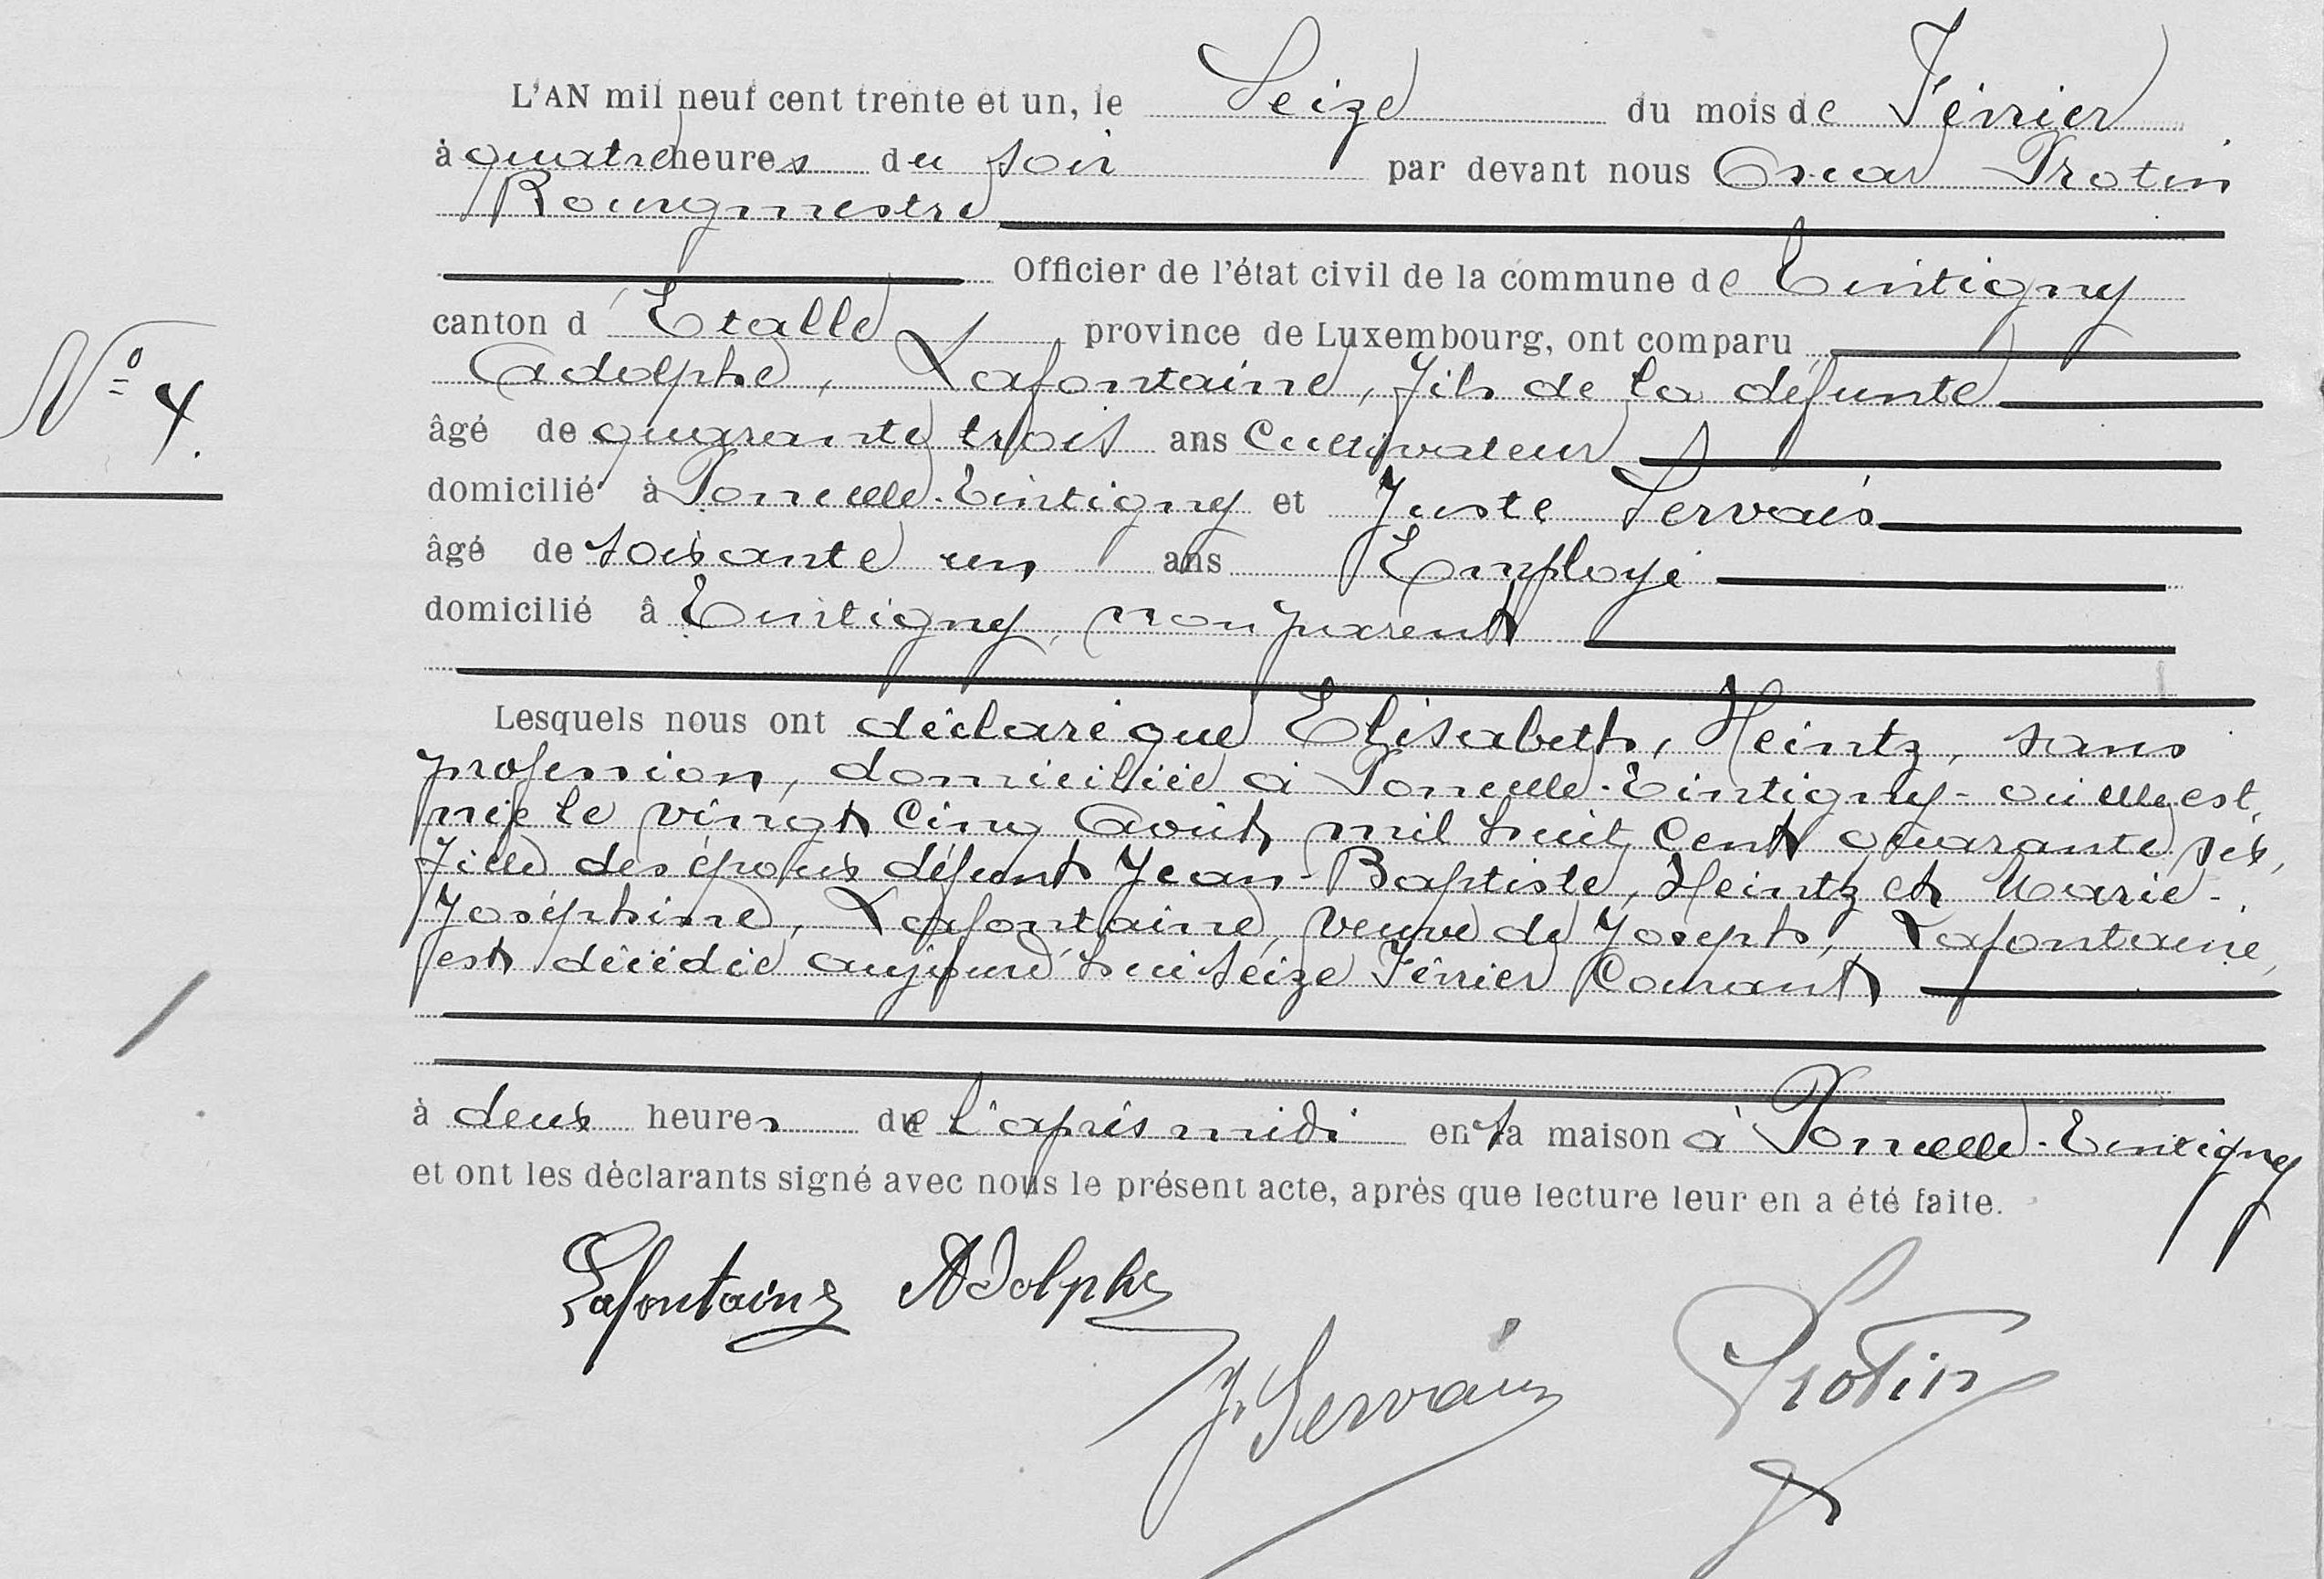 L'AN mil neuf cent trente et un, le Seize du mois de Février
à quatre heures du soir par devant nous Oscar Protin
Bourgmestre
Officier de l'état civil de la commune de Tintigny
canton d'Etalle province de Luxembourg, ont comparu
Nº 4.
Adolphe, Lafontaine, fils de la défunte
âgé de quarante trois ans Cultivateur
domicilié à Poncelle-Tintigny et Juste Servais
âgé de soixante un ans Employé
domicilié â Tintigny, non parent
Lesquels nous ont déclaré que Elisabeth, Heintz, sans
profession, domiciliée à Poncelle-Tintigny - où elle est
née le vingt cinq Août mil huit cent quarante six,
fille des époux défunts Jean-Baptiste, Heintz et Marie-
Joséphine, Lafontaine, veuve de Joseph, Lafontaine,
est décédée aujourd'hui seize Février Courant
à deux heures de l'après midi en sa maison à Poncelle-Tintigny
et ont les dèclarants signé avec nous le présent acte, après que lecture leur en a été faite.
Lafontaine Adolphe
J. Servais Protin